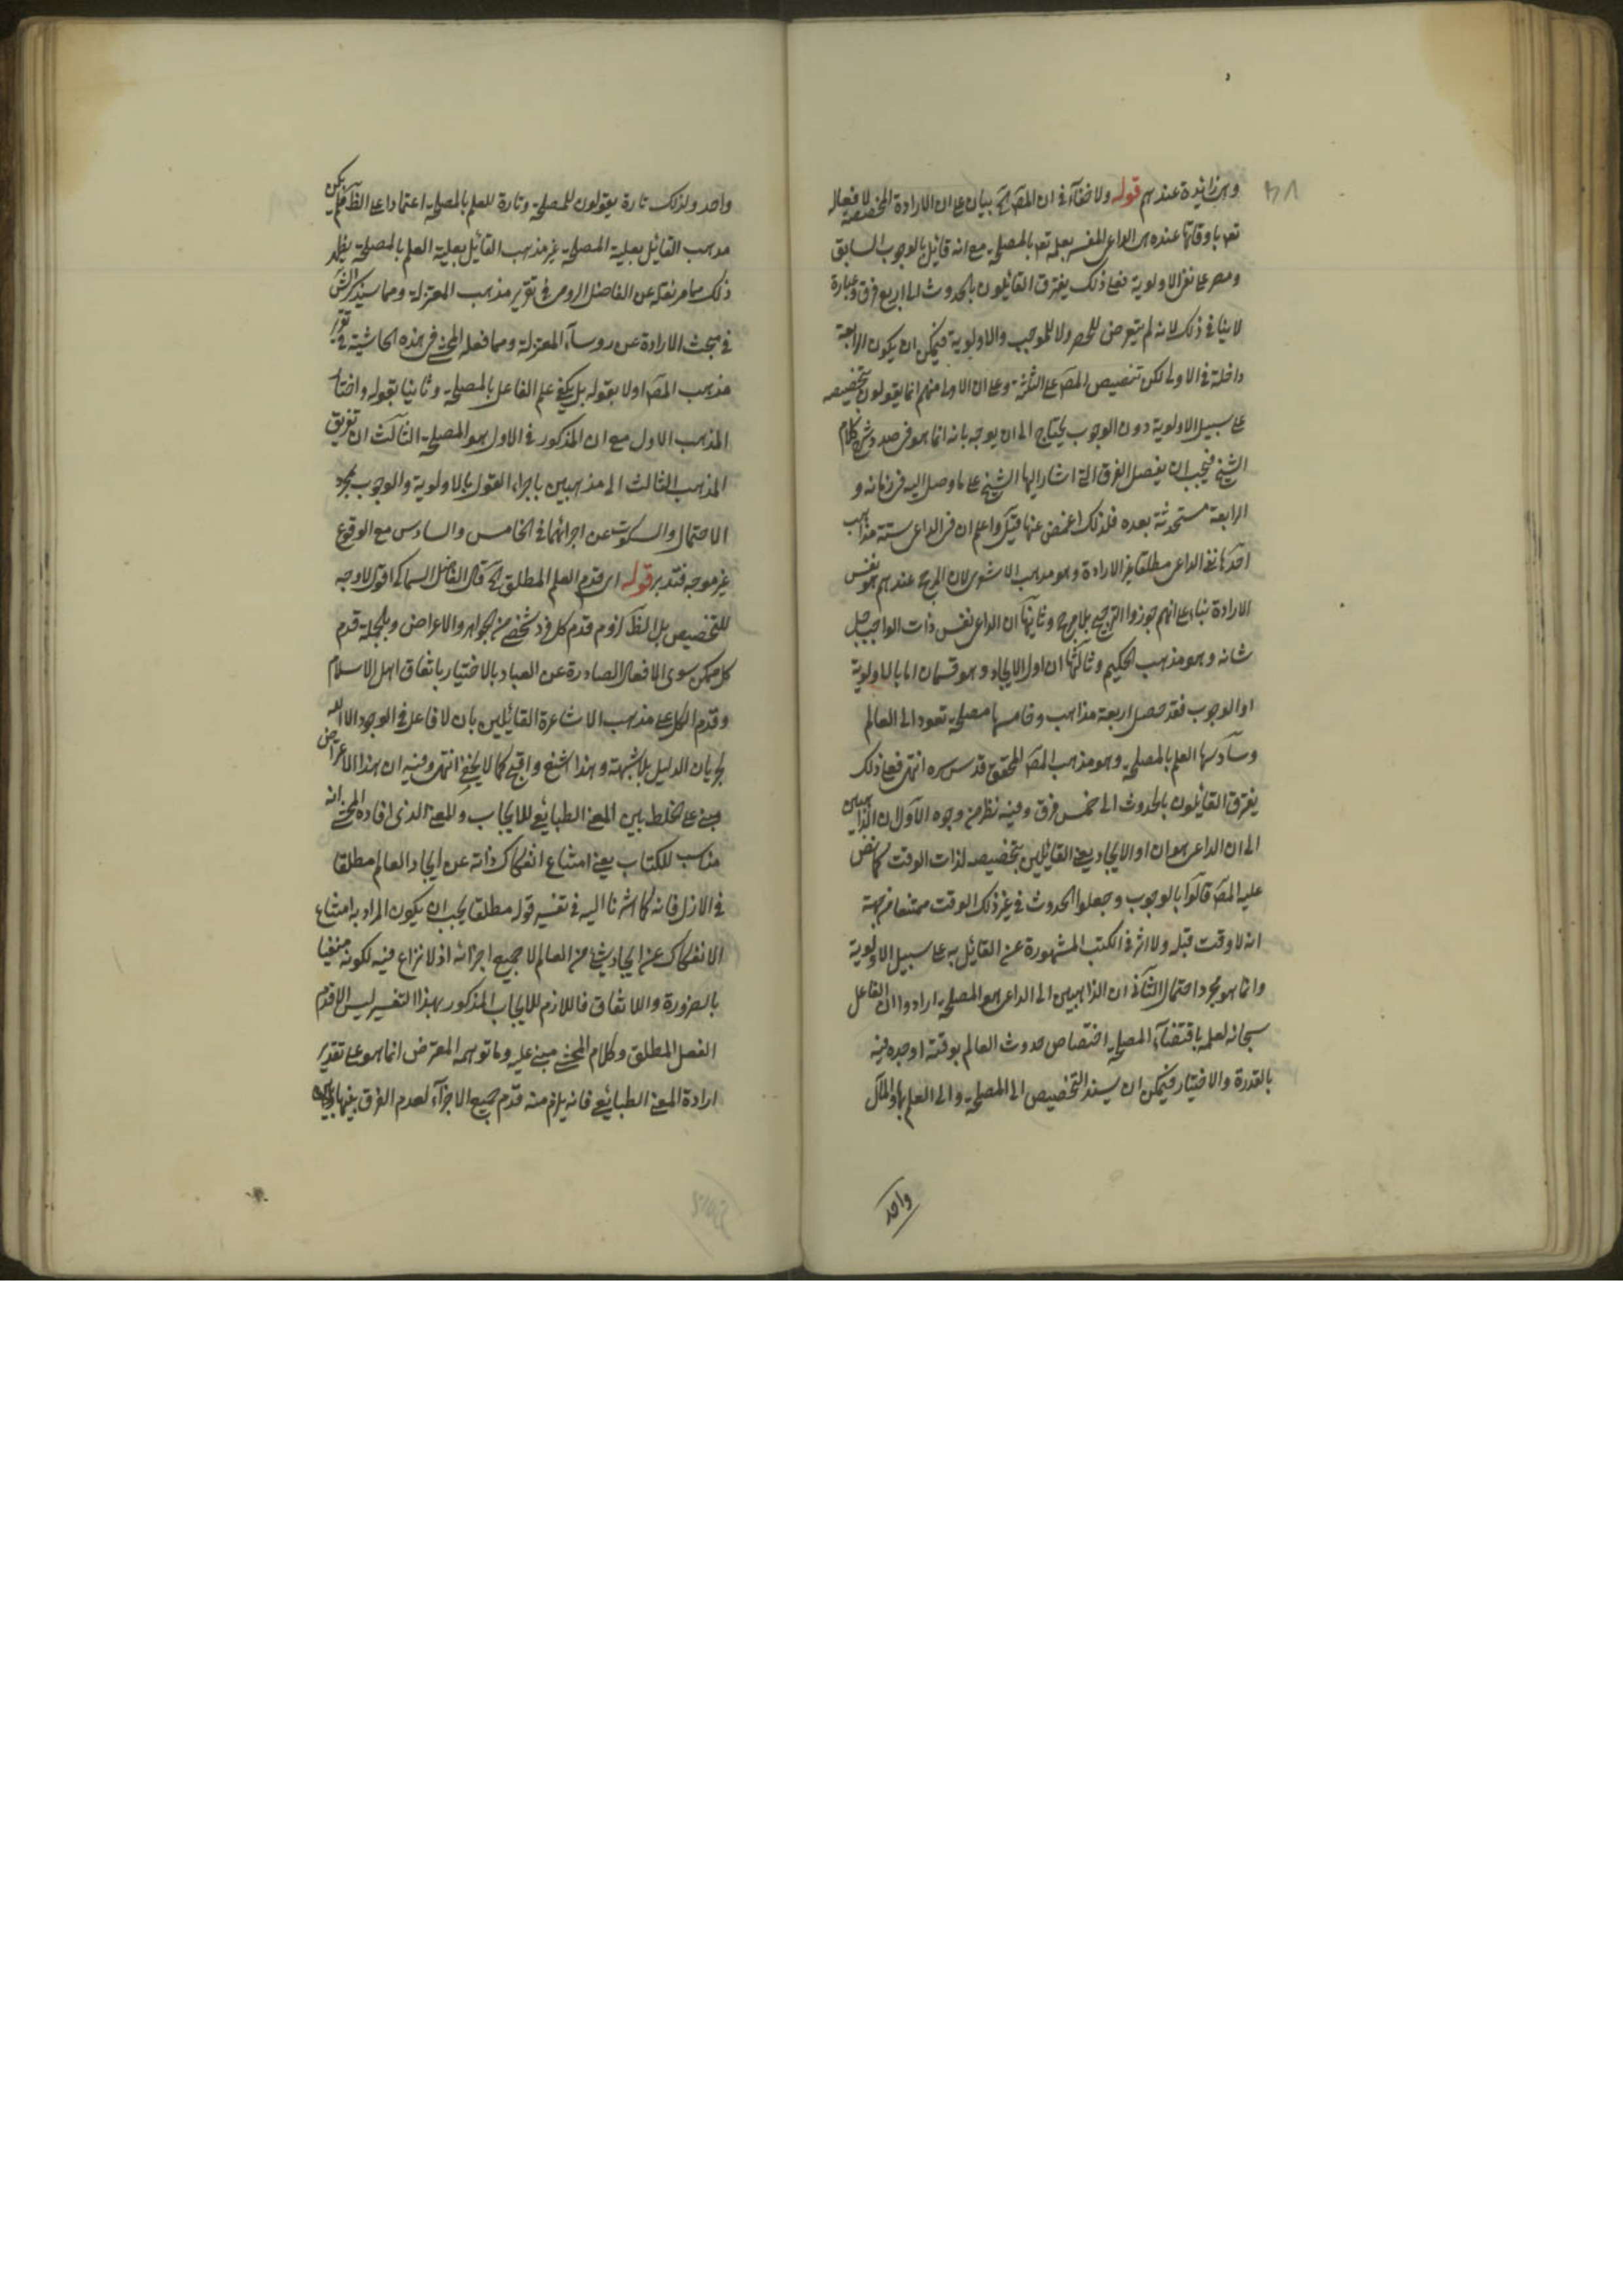 وهى زائدة عندهم قوله ولا خفاء فى ان المص الخ بيان على ان الارادة المخصصة لافعاله
تعم باوقاتها عنده هى الداعى المفسر بعلمه تعم بالمصلحة مع انه قائل بالوجوب السابق
ومصر على نفى الاولوية فعلى ذلك يفترق القائلون بالحدوث الى اربع فرق وعبارة
لا ينافى ذلك لانه لم يتعرض للحصر ولا للموجب والاولوية فيمكن ان يكون الرابعة
داخلة فى الاولى لكن تنصيص المص على الثلثة وعلى ان الاولى منهم انما يقولون بتخصيصه
على سبيل الاولوية دون الوجوب يحتاج الى ان يوجه بانه انما هو فى صدد شرح كلام
الشيخ فيجب ان يفصل الفرق التى اشار اليها الشيخ على ما وصل اليه فى زمانه و
الرابعة مستحدثة بعده فلذلك اغمض عنها قيل واعلم ان فى الداعى ستة مذاهب
احدها نفى الداعى مطلقا غير الارادة وهو مذهب الاشعرى لان المرجح عندهم هو نفس
الارادة بناء على انهم جوزوا الترجيح بلا مرجح وثانيها ان الداعى نفس ذات الواجب جل
شانه وهو مذهب الحكيم وثالثها ان اول الايجاد وهو قسمان اما بالاولوية
او الوجوب فقد حصل اربعة مذاهب وخامسها مصلحة تعود الى العالم
وسادسها العلم بالمصلحة وهو مذهب المص المحقق قدس سره انتهى فعلى ذلك
يفترق القائلون بالحدوث الى خمس فرق وفيه نظر من وجوه الاول ان الذاهبين
الى ان الداعى هو ان اول الايجاد يعنى القائلين بتخصيصه لذات الوقت كما نص
عليه المص قالوا بالوجوب وجعلوا الحدوث فى غير ذلك الوقت ممتنعا من جهة
انه لا وقت قبله ولا اثر فى الكتب المشهورة عن القائل به على سبيل الاولوية
وانما هو مجرد احتمال الثانى ان الذاهبين الى الداعى هو المصلحة ارادوا ان الفاعل
سبحانه لعلمه باقتضاء المصلحة اختصاص حدوث العالم بوقته اوجده فيه
بالقدرة والاختيار فيمكن ان يسند التخصيص الى المصلحة والى العلم بها والمآل
واحد
واحد ولذلك تارة يقولون للمصلحة وتارة للعلم بالمصلحة اعتمادا على الظ فلم يكن
مذهب القائل بعلية المصلحة غير مذهب القائل بعلية العلم بالمصلحة يظهر
ذلك مما مر نقله عن الفاضل الرومى فى تقرير مذهب المعتزلة ومما سيذكر الش
فى مبحث الارادة عن روساء المعتزلة ومما فعله المحشى فى هذه الحاشية فى تقرير
مذهب المص اولا بقوله بل يكفى علم الفاعل بالمصلحة وثانيا بقوله واختار
المذهب الاول مع ان المذكور فى الاول هو المصلحة الثالث ان تفريق
المذهب الثالث الى مذهبين باجراء القول بالاولوية والوجوب بمجرد
الاحتمال والسكوت عن اجرائهما فى الخامس والسادس مع الوقوع
غير موجه فتدبر قوله اى قدم العلم المطلق الخ قال الفاضل السماكى اقول لا وجه
للتخصيص بل الظ لزوم قدم كل فرد شخص من الجواهر والاعراض وبالجملة قدم
كل ممكن سوى الافعال الصادرة عن العباد بالاختيار باتفاق اهل الاسلام
وقدم الكل على مذهب الاشاعرة القائلين بان لا فاعل فى الوجود الا الله
لجريان الدليل بلا شبهة وهذا اشنع واقبح كما لا يخفى انتهى وفيه ان هذا الاعتراض
مبنى على الخلط بين المعنى الطبائعى للايجاب والمعنى الذى افاده المحشى انه
مناسب للكتاب يعنى امتناع انفكاك ذاته عن ايجاد العالم مطلقا
فى الازل فانه كما اشرنا اليه فى تفسير قوله مطلقا يجب ان يكون المراد به امتناع
الانفكاك عن ايجاد شئ من العالم لا جميع اجزائه اذ لا نزاع فيه لكونه منفيا
بالضرورة والاتفاق فاللازم للايجاب المذكور بهذا التفسير ليس الا قدم
الفعل المطلق وكلام المحشى مبنى عليه وما توهمه المعترض انما هو على تقدير
ارادة المعنى الطبائعى فانه يلزم منه قدم جميع الاجزاء لعدم الفرق بينها